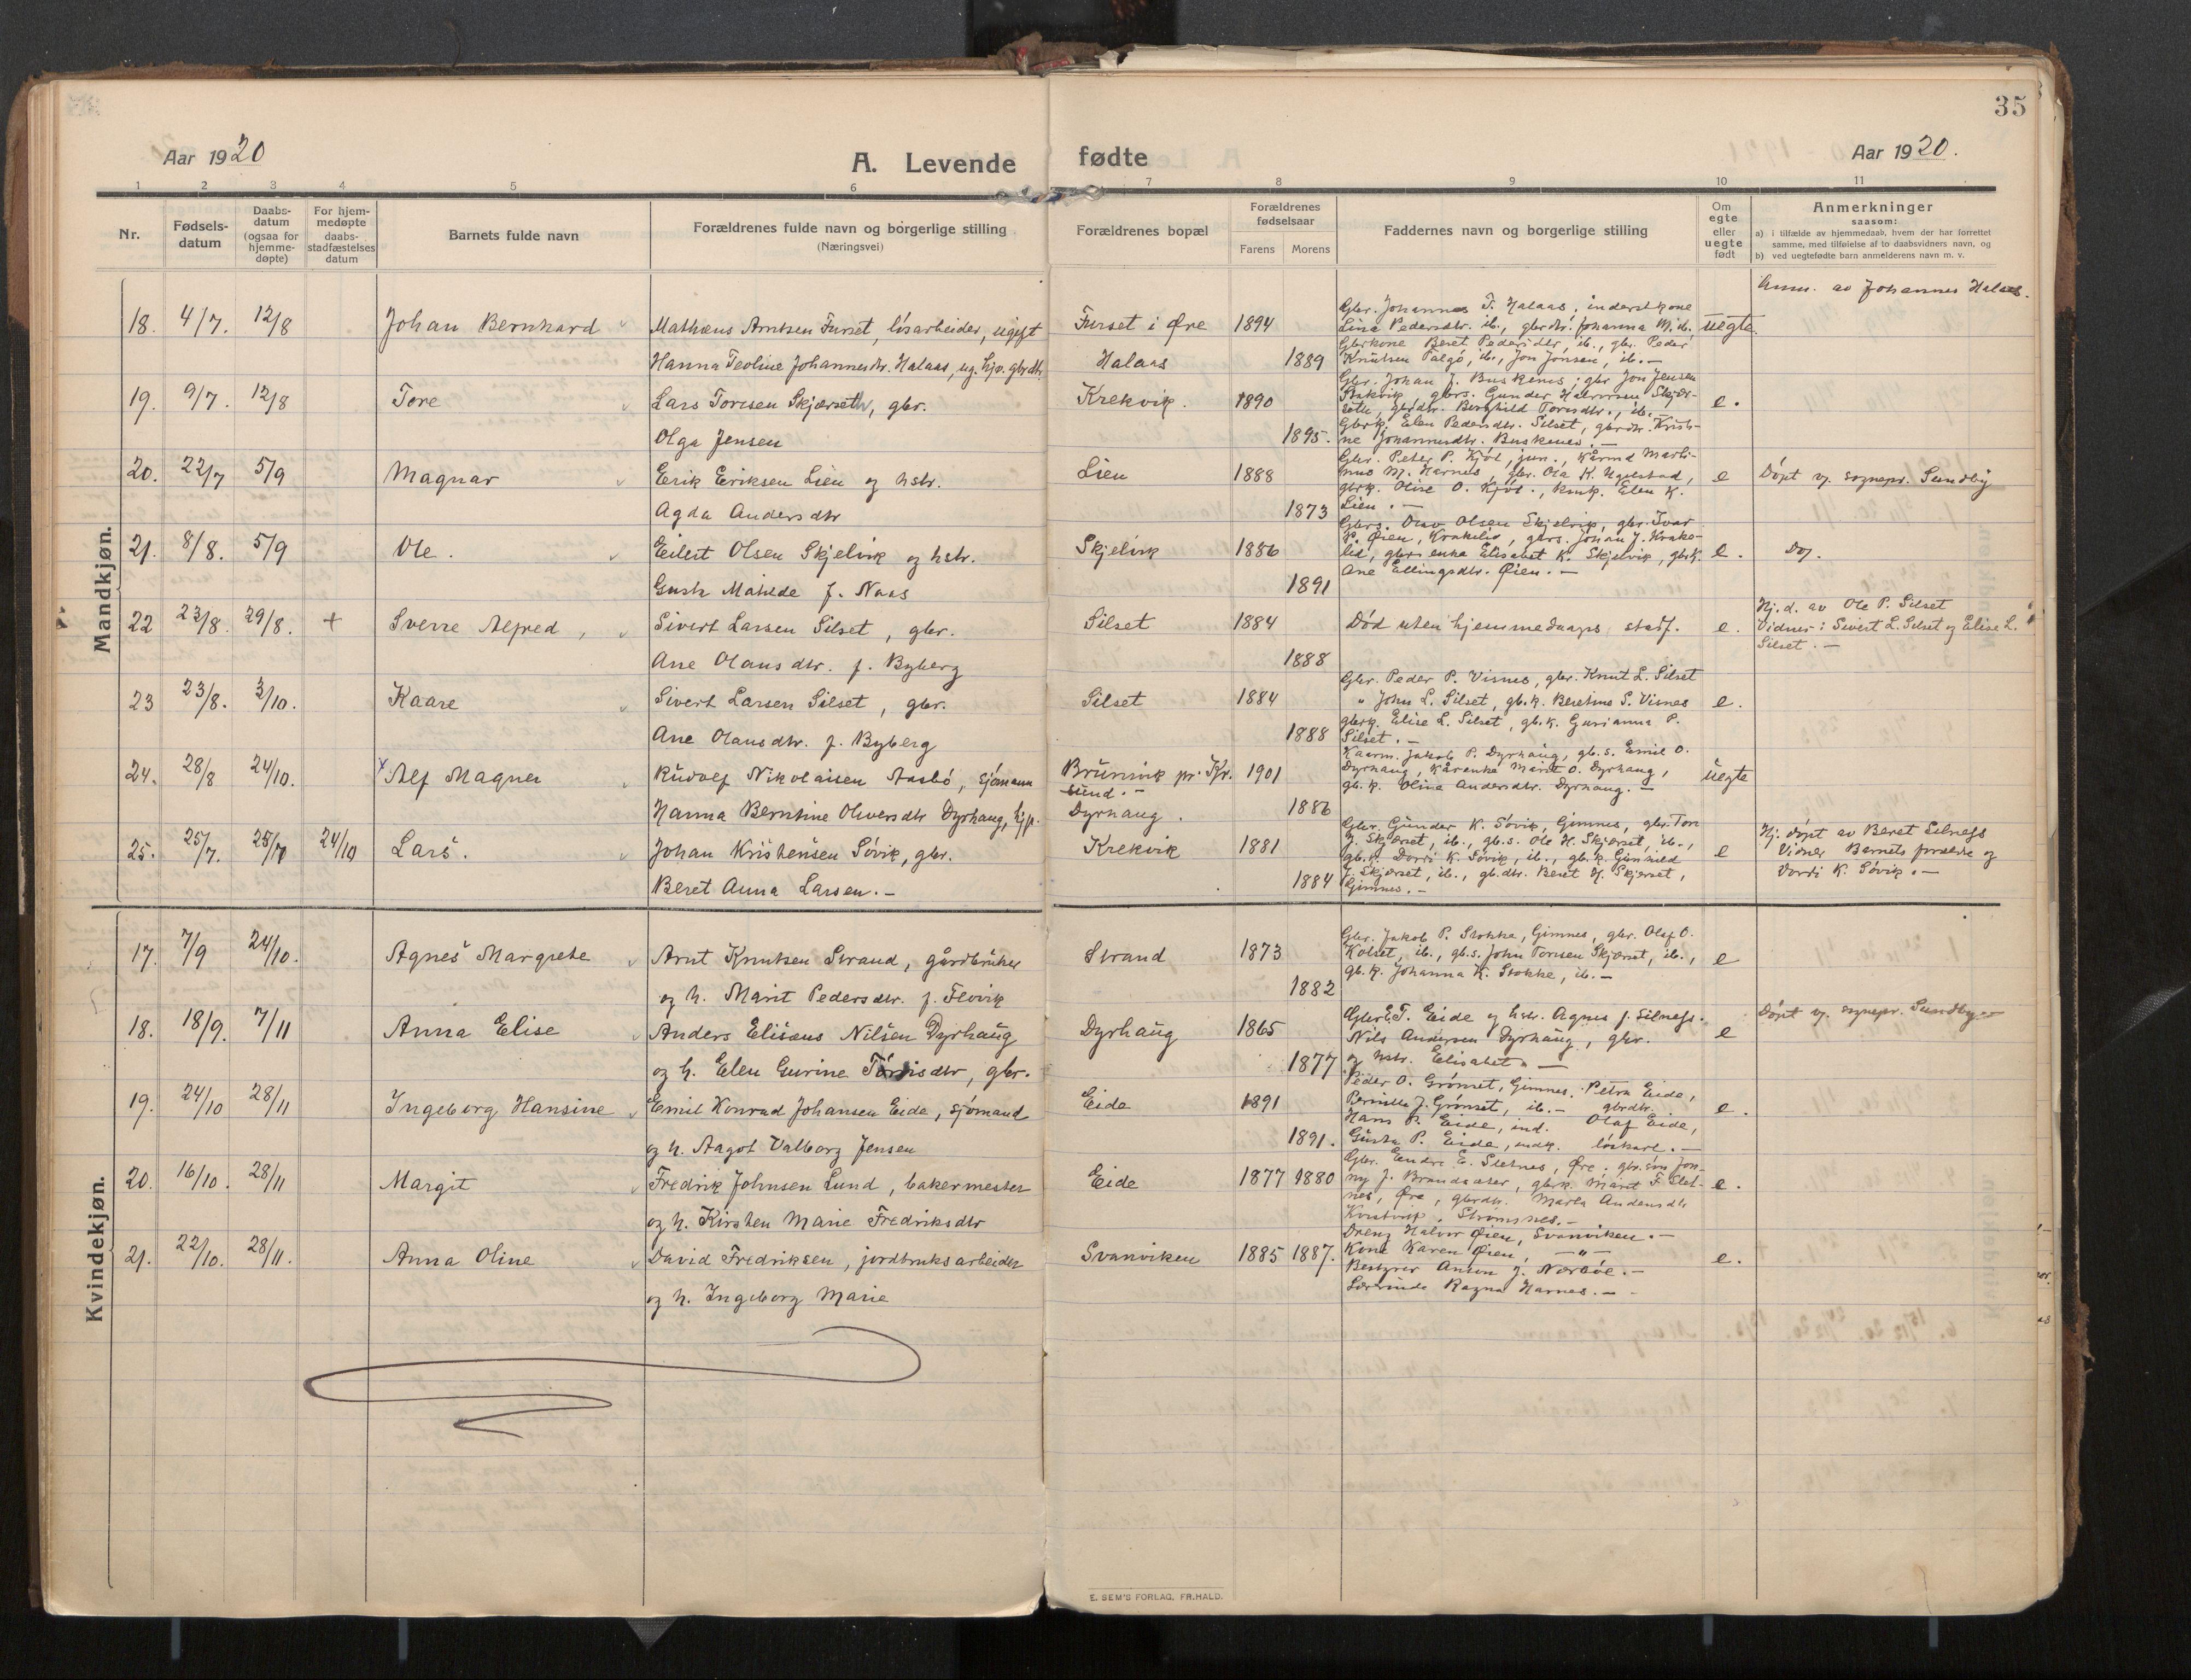 35
Aar 1920
A. Levende
fødte
Aar 1920.
1 2 3 4 5 6 7 8 9 10 11
Nr.
Fødsels-
datum
Daabs-
datum
(ogsaa for
hjemme-
døpte)
For hjem-
medøpte
daabs-
stadfæstelses
datum
Barnets fulde navn
Forældrenes fulde navn og borgerlige stilling
(Næringsvei)
Forældrenes bopæl
Forældrenes
fødselsaar
Farens Morens
Faddernes navn og borgerlige stilling
Om
egte
eller
uegte
født
Anmerkninger
saasom:
a) i tilfælde av hjemmedaab, hvem der har forrettet
samme, med tilføielse af to daabsvidners navn, og
b) ved uegtefødte barn anmelderens navn m. v.
Mandkjøn.
Anm. av Johannes Halaas.
18. 4/7. 12/8 Johan Bernhard Mathæus Arntsen Furset, løsarbeider, ugift Furset i Øre 1894 uegte.
Gbr. Johannes T. Halaas, inderstkone
Lina Pedersdtr. ib., gbrdtr. Johanna M. ib.
Gbrkone Beret Pedersdtr, ib., gbr. Peder
Hanna Teoline Johannesdtr. Halaas, ug. hjv. gbrdtr. Halaas 1889
Knutsen Talgø, ib., Jon Jonsen, ib. —
19. 9/7. 12/8 Tore Lars Toresen Skjærseth, gbr. Krekvik. 1890 e.
Gbr. Johan J. Buskenes, gbr Jon Jensen
Olga Jensen 1895.
Gbrk. Elen Pedersdtr. Silset, gbrdtr. Kristi-
ne Johannesdtr. Buskenes. —
20. 22/7 5/9 Magnar Erik Eriksen Lien og hstr. Lien 1888 e Døpt v. sognepr. Sundby
Gbr. Peter P. Kjøl, jun., kårmd Marti-
nus M. Harnes, gbr. Ola K. Ugelstad,
gbrk. Olise O. Kjøl., kmk. Elen K.
Agda Andersdtr 1873 Lien. —
21. 8/8. 5/9 Ole. Eilert Olsen Skjelvik og hstr. Skjelvik 1886 e. Do.
P. Øien, Krakelid, gbrs. Johan J. Krake-
lid, gbrs enke Elisabet K. Skjelvik, gbrk.
Ane Ellingsdtr. Øien. —
Gusta Matilde f. Naas 1891
22 23/8. 29/8. + Sverre Alfred, Sivert Larsen Silset, gbr. Silset 1884 Død uten hjemmedaaps stadf. e.
Hj. d. av Ole P. Silset
Vidner: Sivert L. Silset og Elise L.
Silset. —
Ane Olausdtr. f. Byberg 1888
23 23/8. 3/10. Kaare Sivert Larsen Silset, gbr. Silset 1884 e.
Gbr. Peder P. Visnes, gbr. Knut L. Silset
" John L. Silset, gb.k. Beretine S. Visnes
gbrk. Elise L. Silset, gb.k. Gurianna P.
Silset. —
Ane Olausdtr. f. Byberg 1888
24. 28/8 24/10. Alf Magner Rudolf Nikolaisen Aasbø, sjømann Brunsvik pr. Kr. 1901 uegte
sund. —
Kaarm. Jakob P. Dyrhaug, gb.s. Emil O.
Dyrhaug, kårenke Marit O. Dyrhaug,
gb. k. Olina Andersdtr. Dyrhaug. —
Hanna Berntine Oliversdtr Dyrhaug, hjp. Dyrhaug. 1886
25. 25/7. 25/7 24/10 Lars. Johan Kristensen Søvik, gbr. Krekvik 1881 e
Gbr. Gunder K. Søvik, Gimnes, gbr. Tore
J. Skjærset, ib., gb.s. Ole H. Skjærset, ib.,
gb.k. Dordi K. Søvik, ib., gb.k. Gunhild
J. Skjærset, ib., gb.dtr. Beret H. Skjærset,
Gimnes. —
Hj. døpt av Beret Silnes
Vidner Barnets forældre og
Dordi K. Søvik. —
Beret Anna Larsen. — 1884
Kvindekjøn.
17. 7/9 24/10. Agnes Margrete Arnt Knutsen Strand, gårdbruker Strand 1873 e
Gbr. Jakob P. Stokke, Gimnes, gbr. Olaf O.
Kolset, ib., gb.s. John Toresen Skjærset, ib.,
gb.k. Johanna K. Stokke, ib. —
og h. Marit Pedersdtr. f. Flevik 1882
18. 18/9. 7/11 Anna Elise Anders Elisæus Nilsen Dyrhaug Dyrhaug 1865 e Døpt v. sognepr. Sundby —
Gbr E. T. Eide og hstr. Agnes f. Silnes.
Nils Andersen Dyrhaug, gbr.
og hstr. Elisabet. —
og h. Elen Gurine Torrisdtr, gbr. 1877
19. 24/10 28/11 Ingeborg Hansine Emil Konrad Johansen Eide, sjømand Eide 1891 e.
Peder O. Grønset, Gimnes. Petra Eide,
Pernille J. Grønset, ib. — gbrdtr.
Hans P. Eide, ind. Olaf Eide,
Gusta P. Eide, indk. løskarl. —
og h. Aagot Valborg Jensen 1891.
20. 16/10. 28/11 Margit Fredrik Johnsen Lund, bakermester Eide 1877 1880 e.
Gbr. Endre E. Sletnes, Øre, gbr.søn Jon-
ny J. Brandsæter, gbrk. Marit F. Slet-
nes, Øre, gbrdtr. Marta Andersdtr
Korsvik, Strømsnes. —
og h. Kirsten Marie Fredriksdtr
21. 22/10. 28/11. Anna Oline David Fredriksen, jordbruksarbeider Svanviken 1885 1887. e.
Dreng Halvor Øien, Svanviken. —
Kone Karen Øien, — " —
Bestyrer Anton J. Nærbøe. —
Lærerinde Ragna Harnes. —
og h. Ingeborg Marie
E. SEM'S FORLAG, FR.HALD.